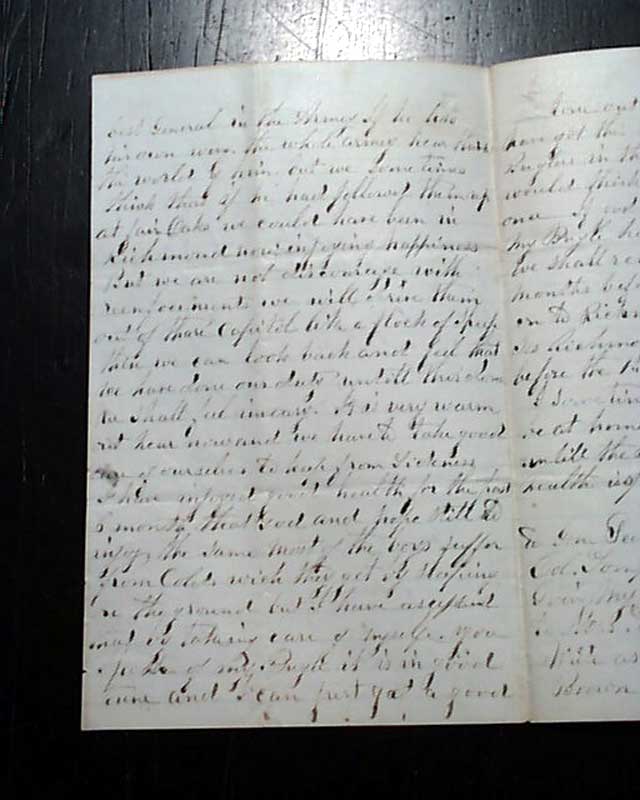 best General in the Armey if he has
his own way. the whole armey hear
the world to him but we some times
think that if we had followed them up
at fair Oaks we could have been in
Richmond now injoying happiness
But we are not discourage with
reenforcements we will drive them
out of thare Capitol like a flock of Sheep
then we can look back and feel that
we have done our duty untill this is done
we shall feel uneasy. It is very warm
out hear now and we have to take good
care of ourselves to keep from Sickness
I have injoyed good health for the past
months thank God and hope still to
injoy the same most of the boys suffer
from Colds wich they get by sleeping
on the ground but I have
way of taking care of myself. you
spoke of my Bugle it is in good
tune and I can just get a good
tone out
have got the
Buglers in th
would think
one if
my Bugle
We shall re
months befo
on to Richm
is Richmon
before the
I Some tim
be at home
untill the
health is
to
Ed.
Giving my
to
as
Brown